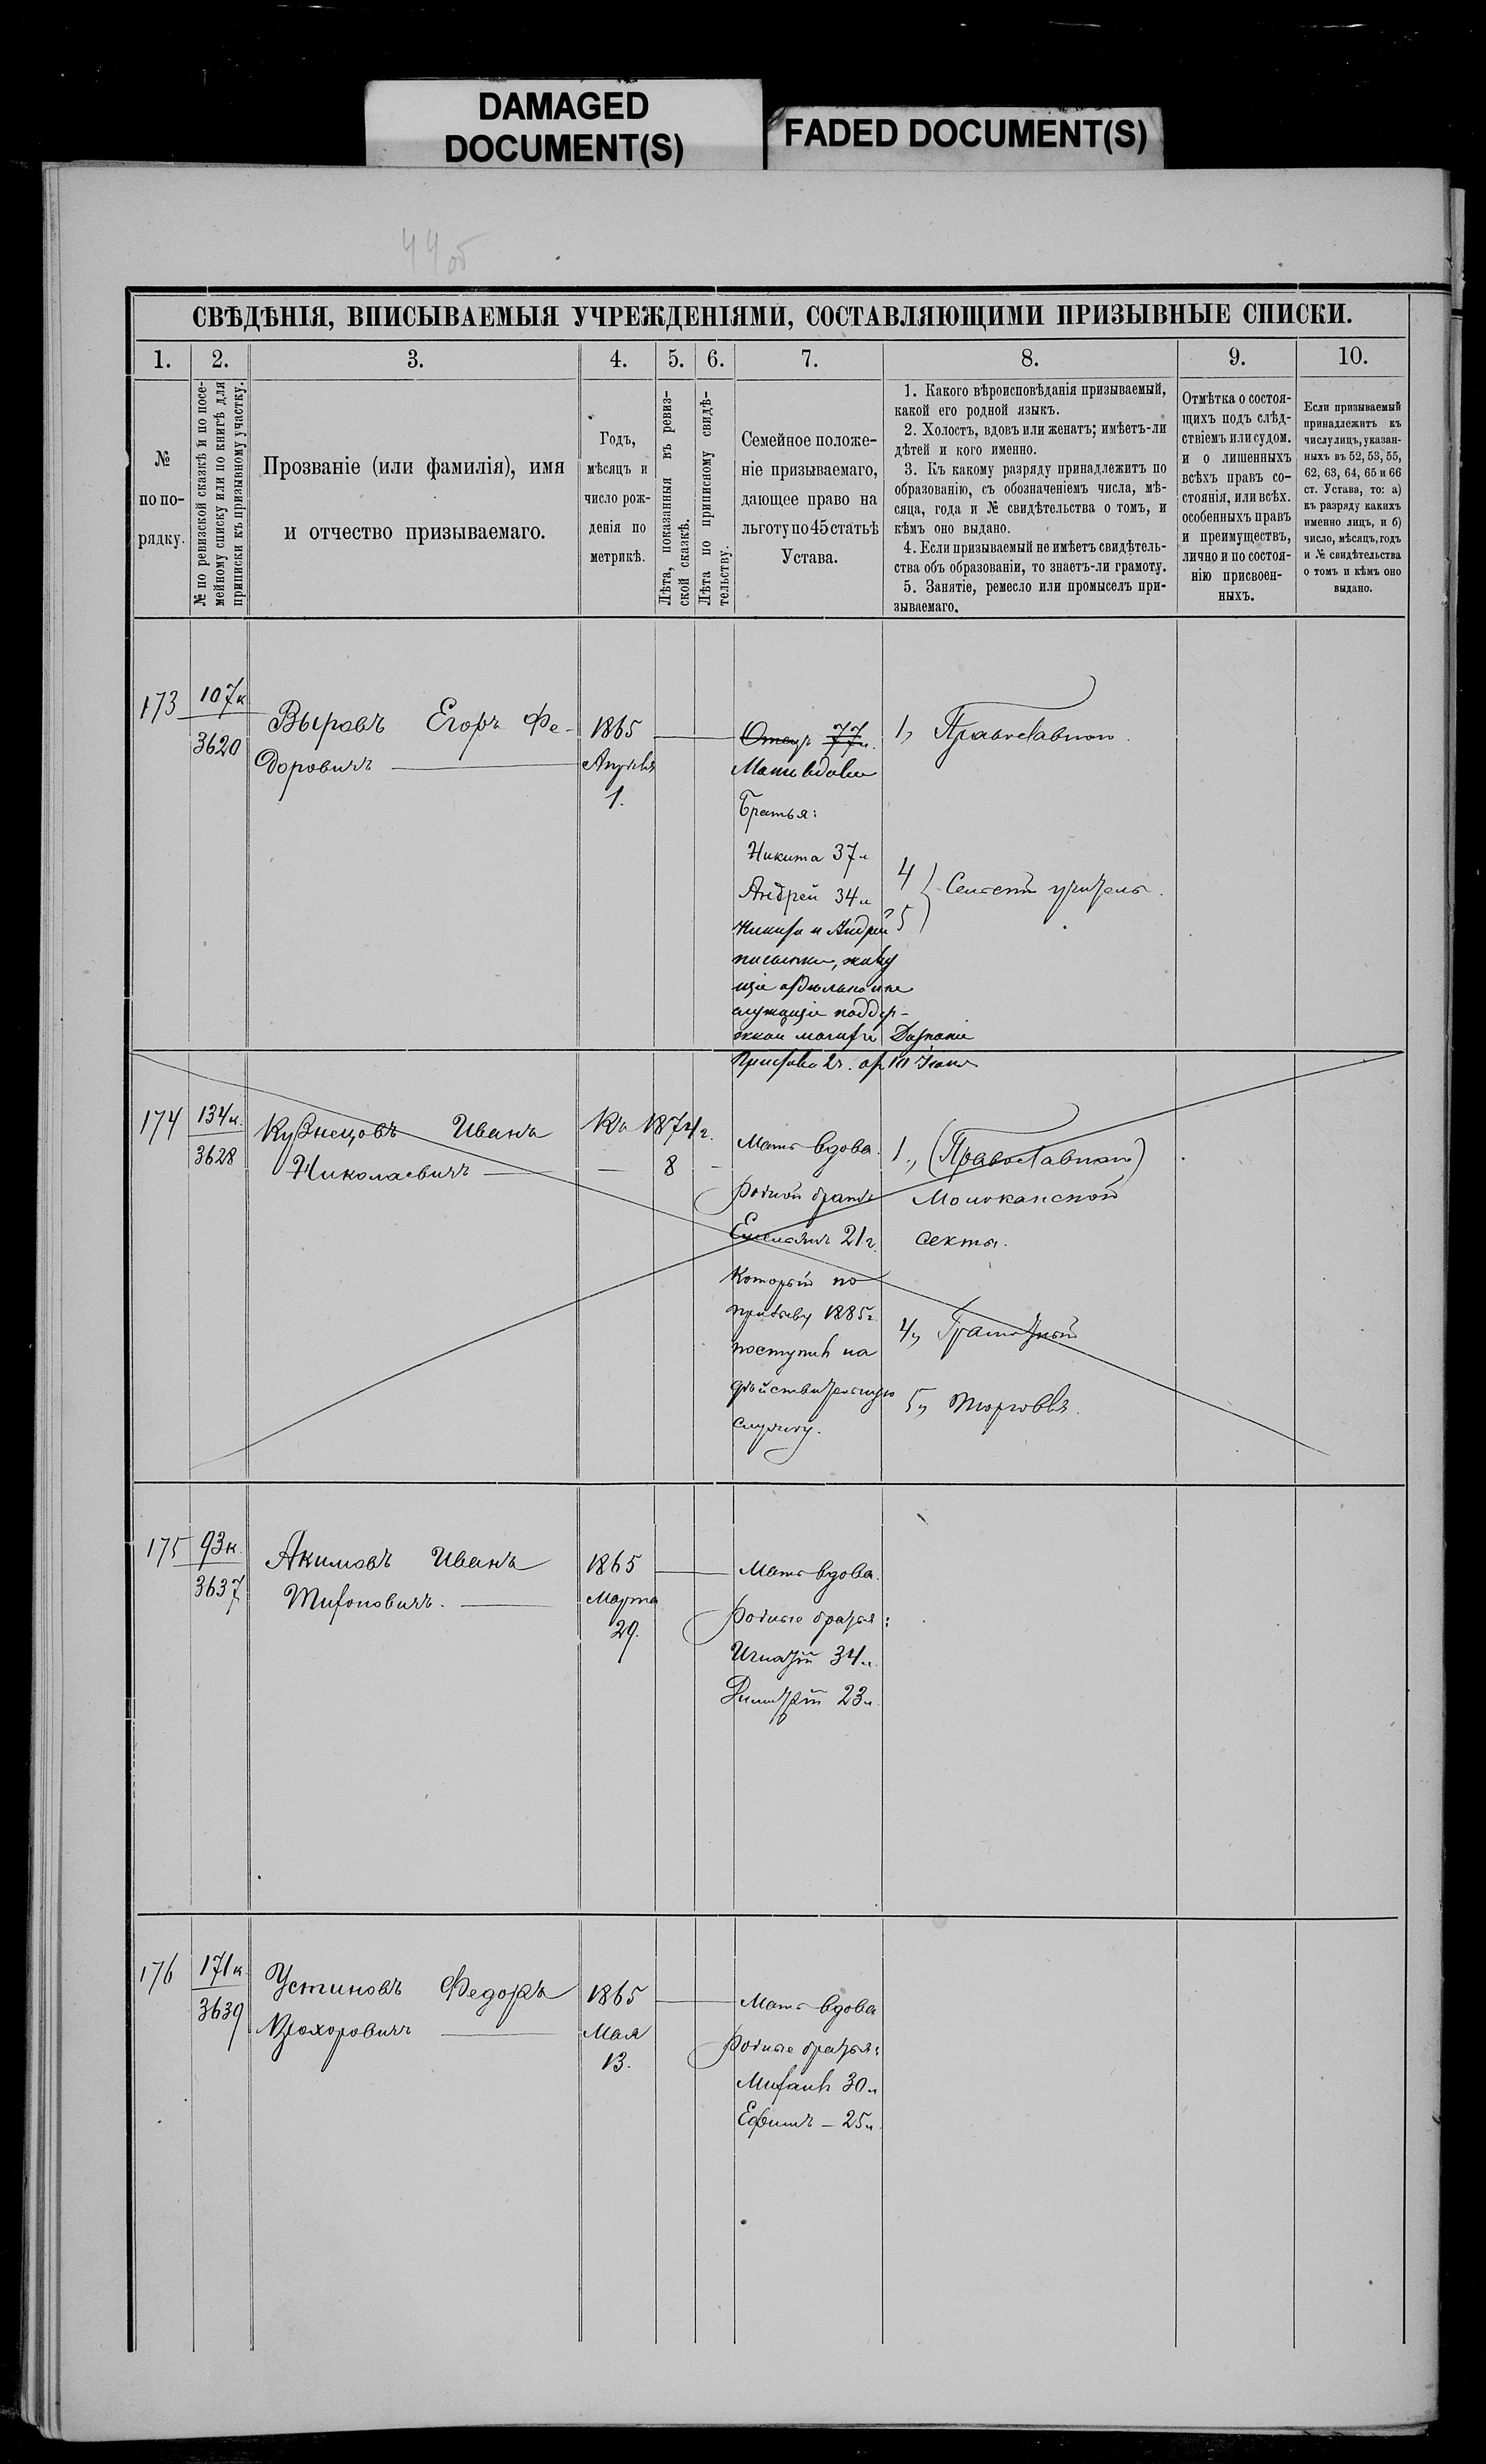 DAMAGED
DOCUMENT(S)
FADED DOCUMENT(S)
44об
СВѢДѢНІЯ, ВПИСЫВАЕМЫЯ УЧРЕЖДЕНІЯМИ, СОСТАВЛЯЮЩИМИ ПРИЗЫВНЫЕ СПИСКИ.
1. 2. 3. 4. 5. 6. 7. 8. 9. 10.
№
по по-
рядку.
№ по ревизской сказкѣ и по посе-
мейному списку или по книгѣ для
приписки къ призывному участку.
Прозваніе (или фамилія), имя
и отчество призываемаго.
Годъ,
мѣсяцъ и
число рож-
денія по
метрикѣ.
Лѣта, показанныя въ ревиз-
ской сказкѣ.
Лѣта по приписному свидѣ-
тельству.
Семейное положе-
ніе призываемаго,
дающее право на
льготу по 45 статьѣ
Устава.
1. Какого вѣроисповѣданія призываемый,
какой его родной языкъ.
2. Холостъ, вдовъ или женатъ; имѣетъ-ли
дѣтей и кого именно.
3. Къ какому разряду принадлежитъ по
образованію, съ обозначеніемъ числа, мѣ-
сяца, года и № свидѣтельства о томъ, и
кѣмъ оно выдано.
4. Если призываемый не имѣетъ свидѣтель-
ства объ образованіи, то знаетъ-ли грамоту.
5. Занятіе, ремесло или промыселъ при-
зываемаго.
Отмѣтка о состоя-
щихъ подъ слѣд-
ствіемъ или судом.
и о лишенныхъ
всѣхъ правъ со-
стоянія, или всѣх.
особенныхъ правъ
и преимуществъ,
лично и по состоя-
нію присвоен-
ныхъ.
Если призываемый
принадлежитъ къ
числу лицъ, указан-
ныхъ въ 52, 53, 55,
62, 63, 64, 65 и 66
ст. Устава, то: а)
къ разряду какихъ
именно лицъ, и б)
число, мѣсяцъ, годъ
и № свидѣтельства
о томъ и кѣмъ оно
выдано.
173
107к
3620
Выровъ Егоръ Фе-
доровичъ
1865
Апрѣля
1.
Отецъ 77л.
Мать вдова
Братья:
Никита 37л
Андрей 34л
Никита и Андрей
живу
щіе отдѣльно и не
служащіе поддер-
жкой матери
1, Православнаго.
4
5
учитель.
174
134к.
3628
Кузнецовъ Иванъ
Николаевичъ
Къ 1874г.
8
Мать вдова.
родной братъ
Емельянъ 21г.
который по
призыву 1885г.
поступилъ на
дѣйствительную
службу.
1., (Православнаго)
Молоканской
секты.
4, Грамотный
5, Торговля.
175
93к.
3637
Акимовъ Иванъ
Тифоновичъ.
1865
Марта
29.
Мать вдова.
родные братья:
Игнатій 34л.
Димитрій 23л.
176
171к
3639
Устиновъ Федоръ
Прохоровичъ
1865
Мая
13.
Мать вдова
родные братья:
Михаилъ 30л
Ефимъ – 25л.